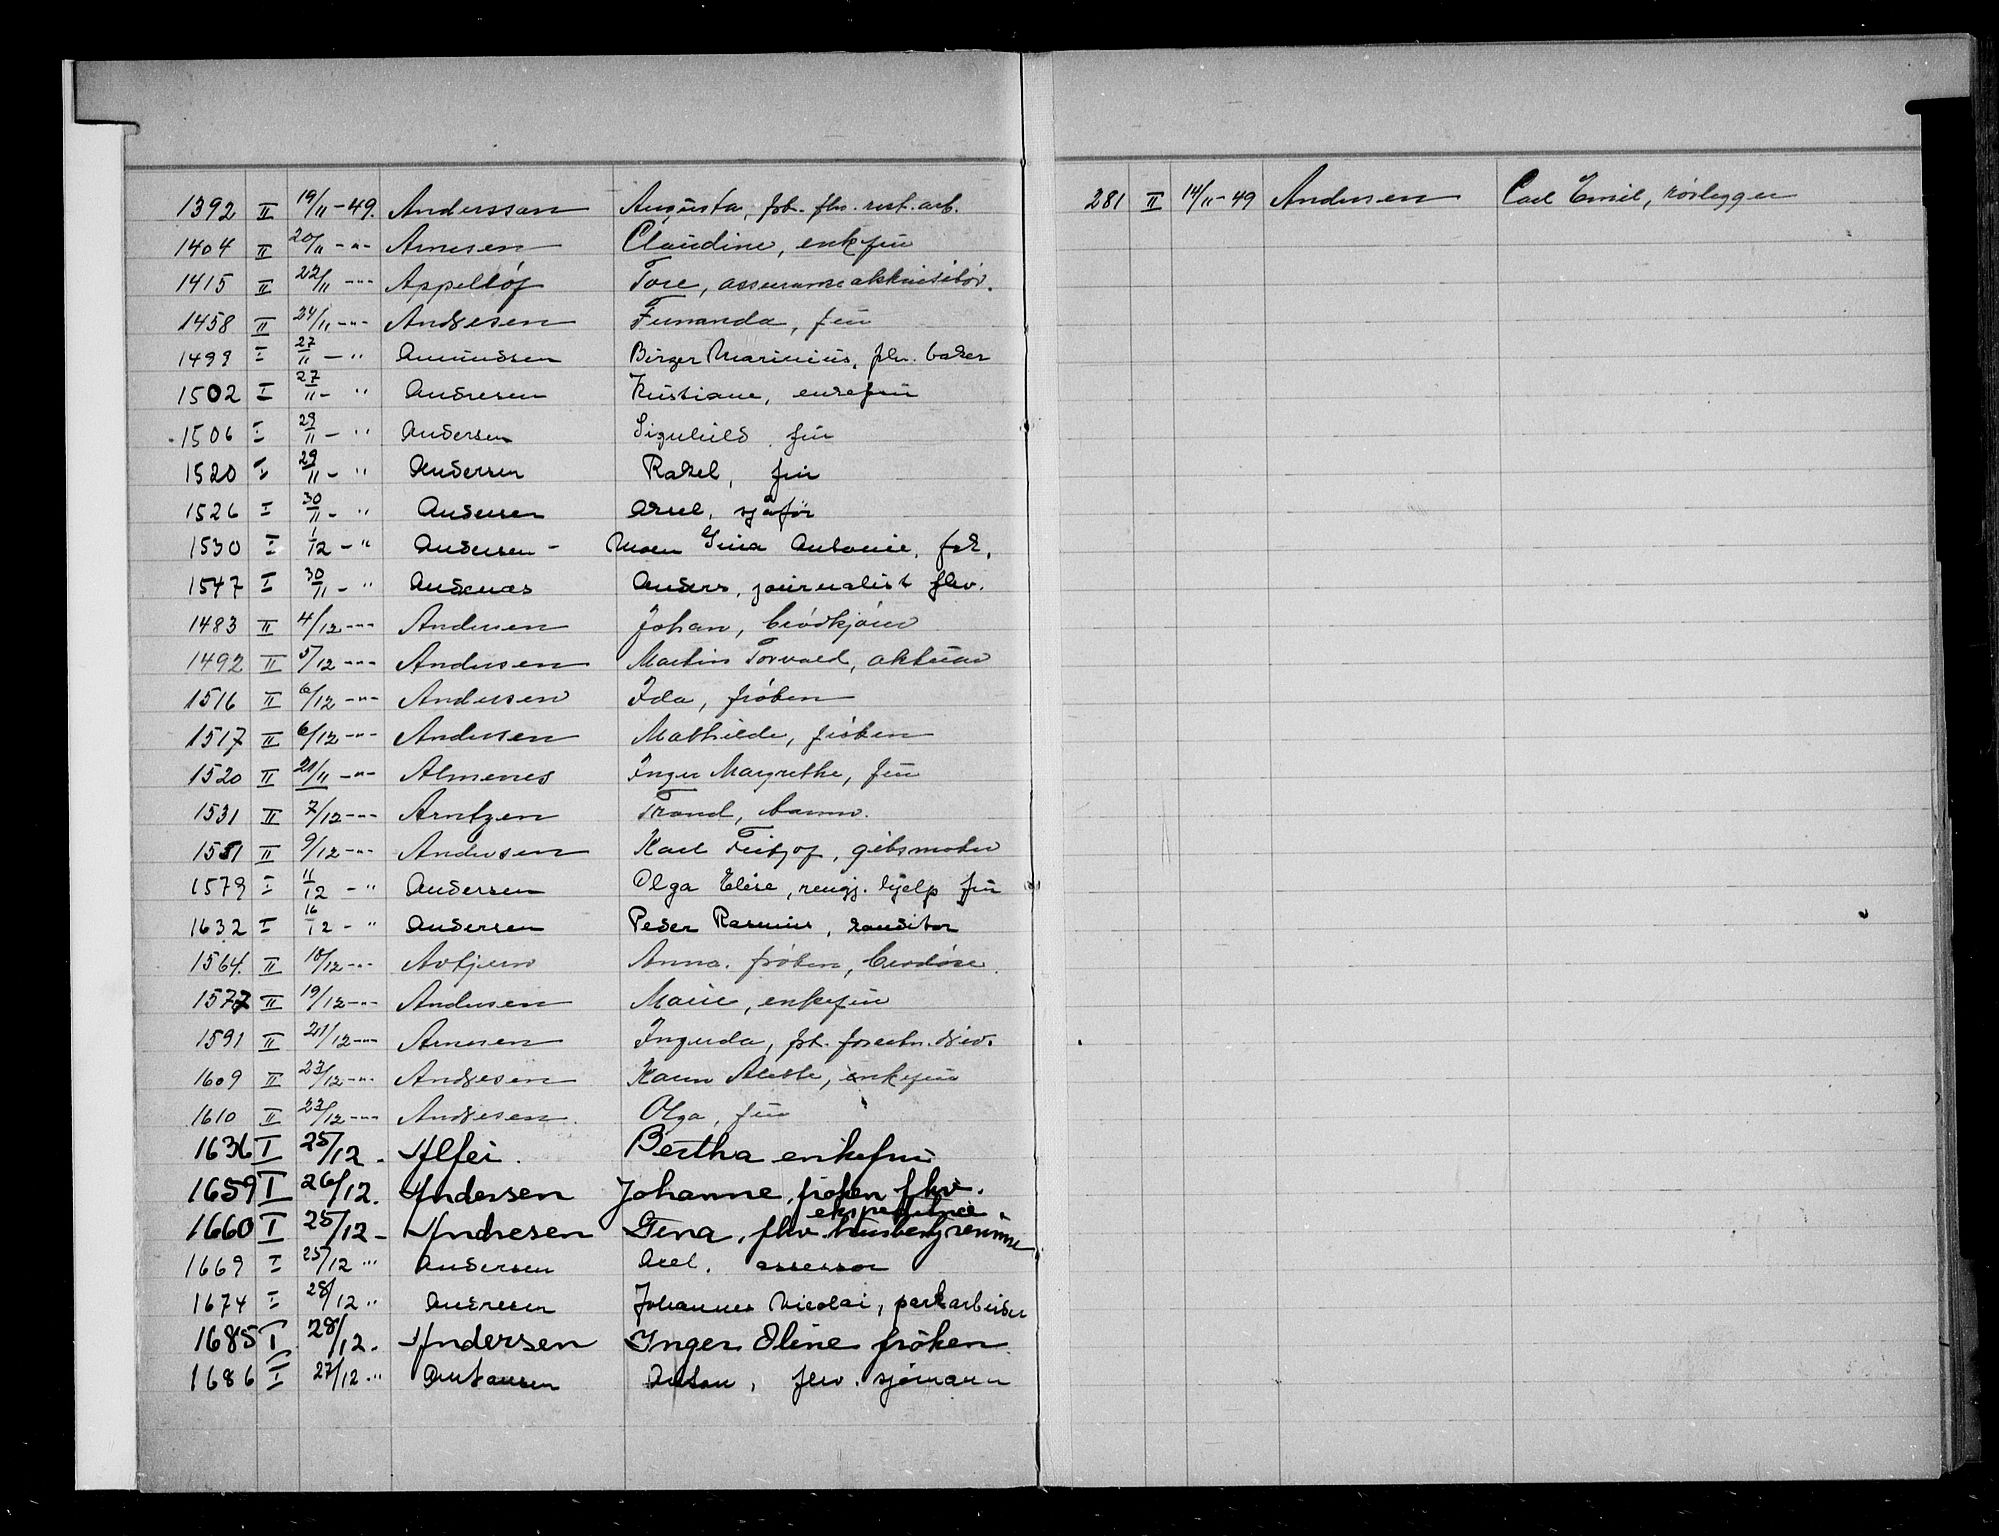 1392 II 19/11-49. Anderssson Augusta, fsk. fhv. rest. arb.
1404 II 20/11 -"- Arnesen Claudine, enkefru
1415 II 22/11 -"- Appelløf Tore, assuranseakkvisitør.
1458 II 24/11 -"- Andresen Fernanda, fru
1499 I 27/11 - " Amundsen Birger Marinius, fhv. baker
1502 I 27/11 - " Andresen Kristiane, enkefru
1506 I 29/11 - " Andersen Signhild fru
1520 I 29/11 - " Andersen Rakel, fru
1526 I 30/11 - " Andersen Aksel, sjåfør
1530 I 1/12 - " Andersen - Moen Gina Antonie, fsk.
1547 I 30/11 - " Andenæs Anders, journalist fhv.
1483 II 4/12 -"- Andersen Johan, brødkjører
1492 II 5/12 -"- Andersen Martin Torvald, aktuar
1516 II 6/12 -"- Andersen Ida, frøken
1517 II 6/12 -"- Andersen Mathilde, frøken
1520 II 21/11 -"- Almenes Inger Margrethe, fru
1531 II 7/12 -"- Arntzen Trond, barn
1551 II 9/12 -"- Andersen Karl Fritjof, gibsmaker
1579 I 11/12 - " Andersen Olga Elise, rengj. hjelp fru
1632 I 16/12 - " Andersen Peder Rasmus, konditor
1564. II 18/12 -"- Avtjern Anna. frøken,
1577 II 19/12 -"- Andersen Marie, enkefru
1591 II 21/12 -"- Arnesen Ingerda, fsk. forretn. driv.
1609 II 23/12 -"- Andresen Karen Alette, enkefru
1610 II 23/12 -"- Andresen Olga, fru
1636 I 25/12 - Alfei. Bertha enkefru
1659 I 26/12. Andersen Johanne, frøken fhv. ekspeditrice
1660 I 25/12 - Andresen Gina, fhv. husbestyrerinne
1669 I 25/12 "' Andersen Axel. assessor
1674 I 28/12 " Andresen Johannes Nicolai, parkarbeider
1685 I 28/12. Andersen Inger Oline frøken
1686 I 27/12 -" Antonsen Anton, fhv. sjømann
281 II 14/11-49 Andersen Carl Emil, rørlegger